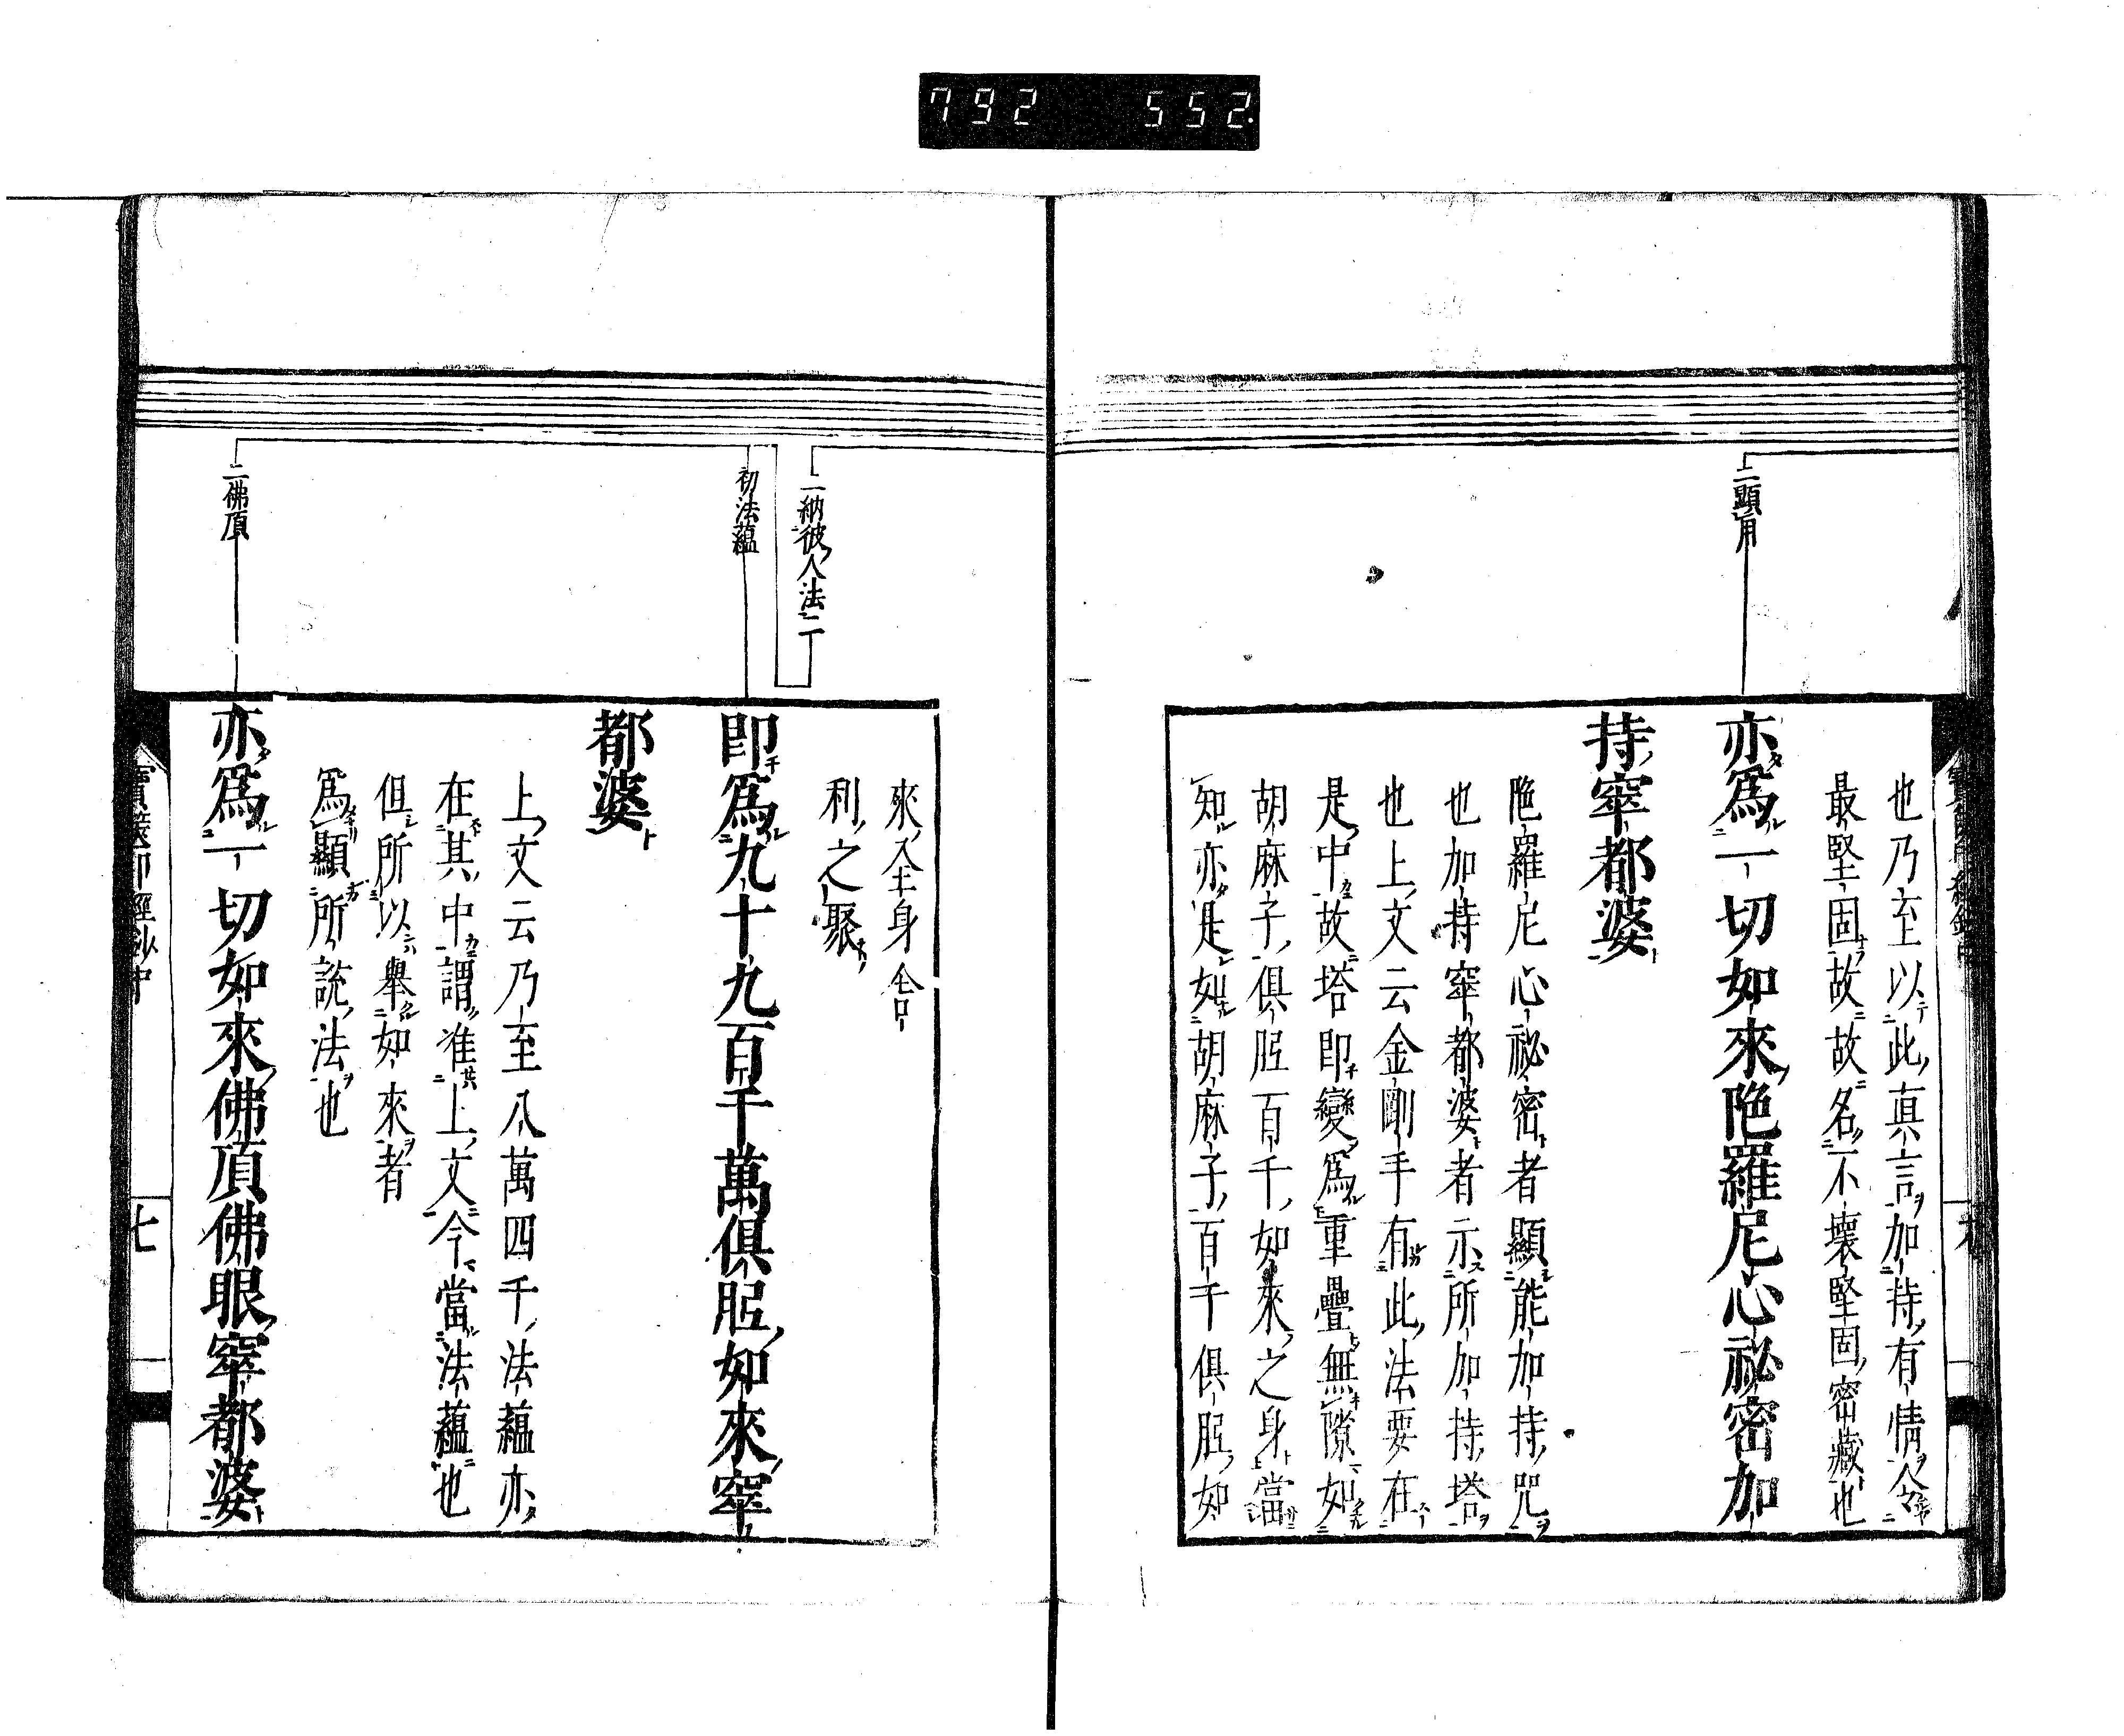 792 552.
二顯用
也乃至以此真言加持有情令
最堅固故故名不壞堅固密藏也
亦爲一切如來陁羅尼心祕密加
持窣都婆
陁羅尼心祕密者顯能加持咒
也加持窣都婆者示所加持塔
也上文云金剛手有此法要在
是中故塔即變爲重疊無隙如
胡麻子俱胝百千如來之身當
知亦是如胡麻子百千俱胝如
二納彼人法二
初法蘊
二佛頂
來全身舍
利之聚
即爲九十九百千萬俱胝如來窣
都婆
上文云乃至八萬四千法蘊亦
在其中謂准上文今當法蘊也
但所以舉如來者
爲顯所說法也
亦爲一切如來佛頂佛眼窣都婆
寶篋印經鈔中
七